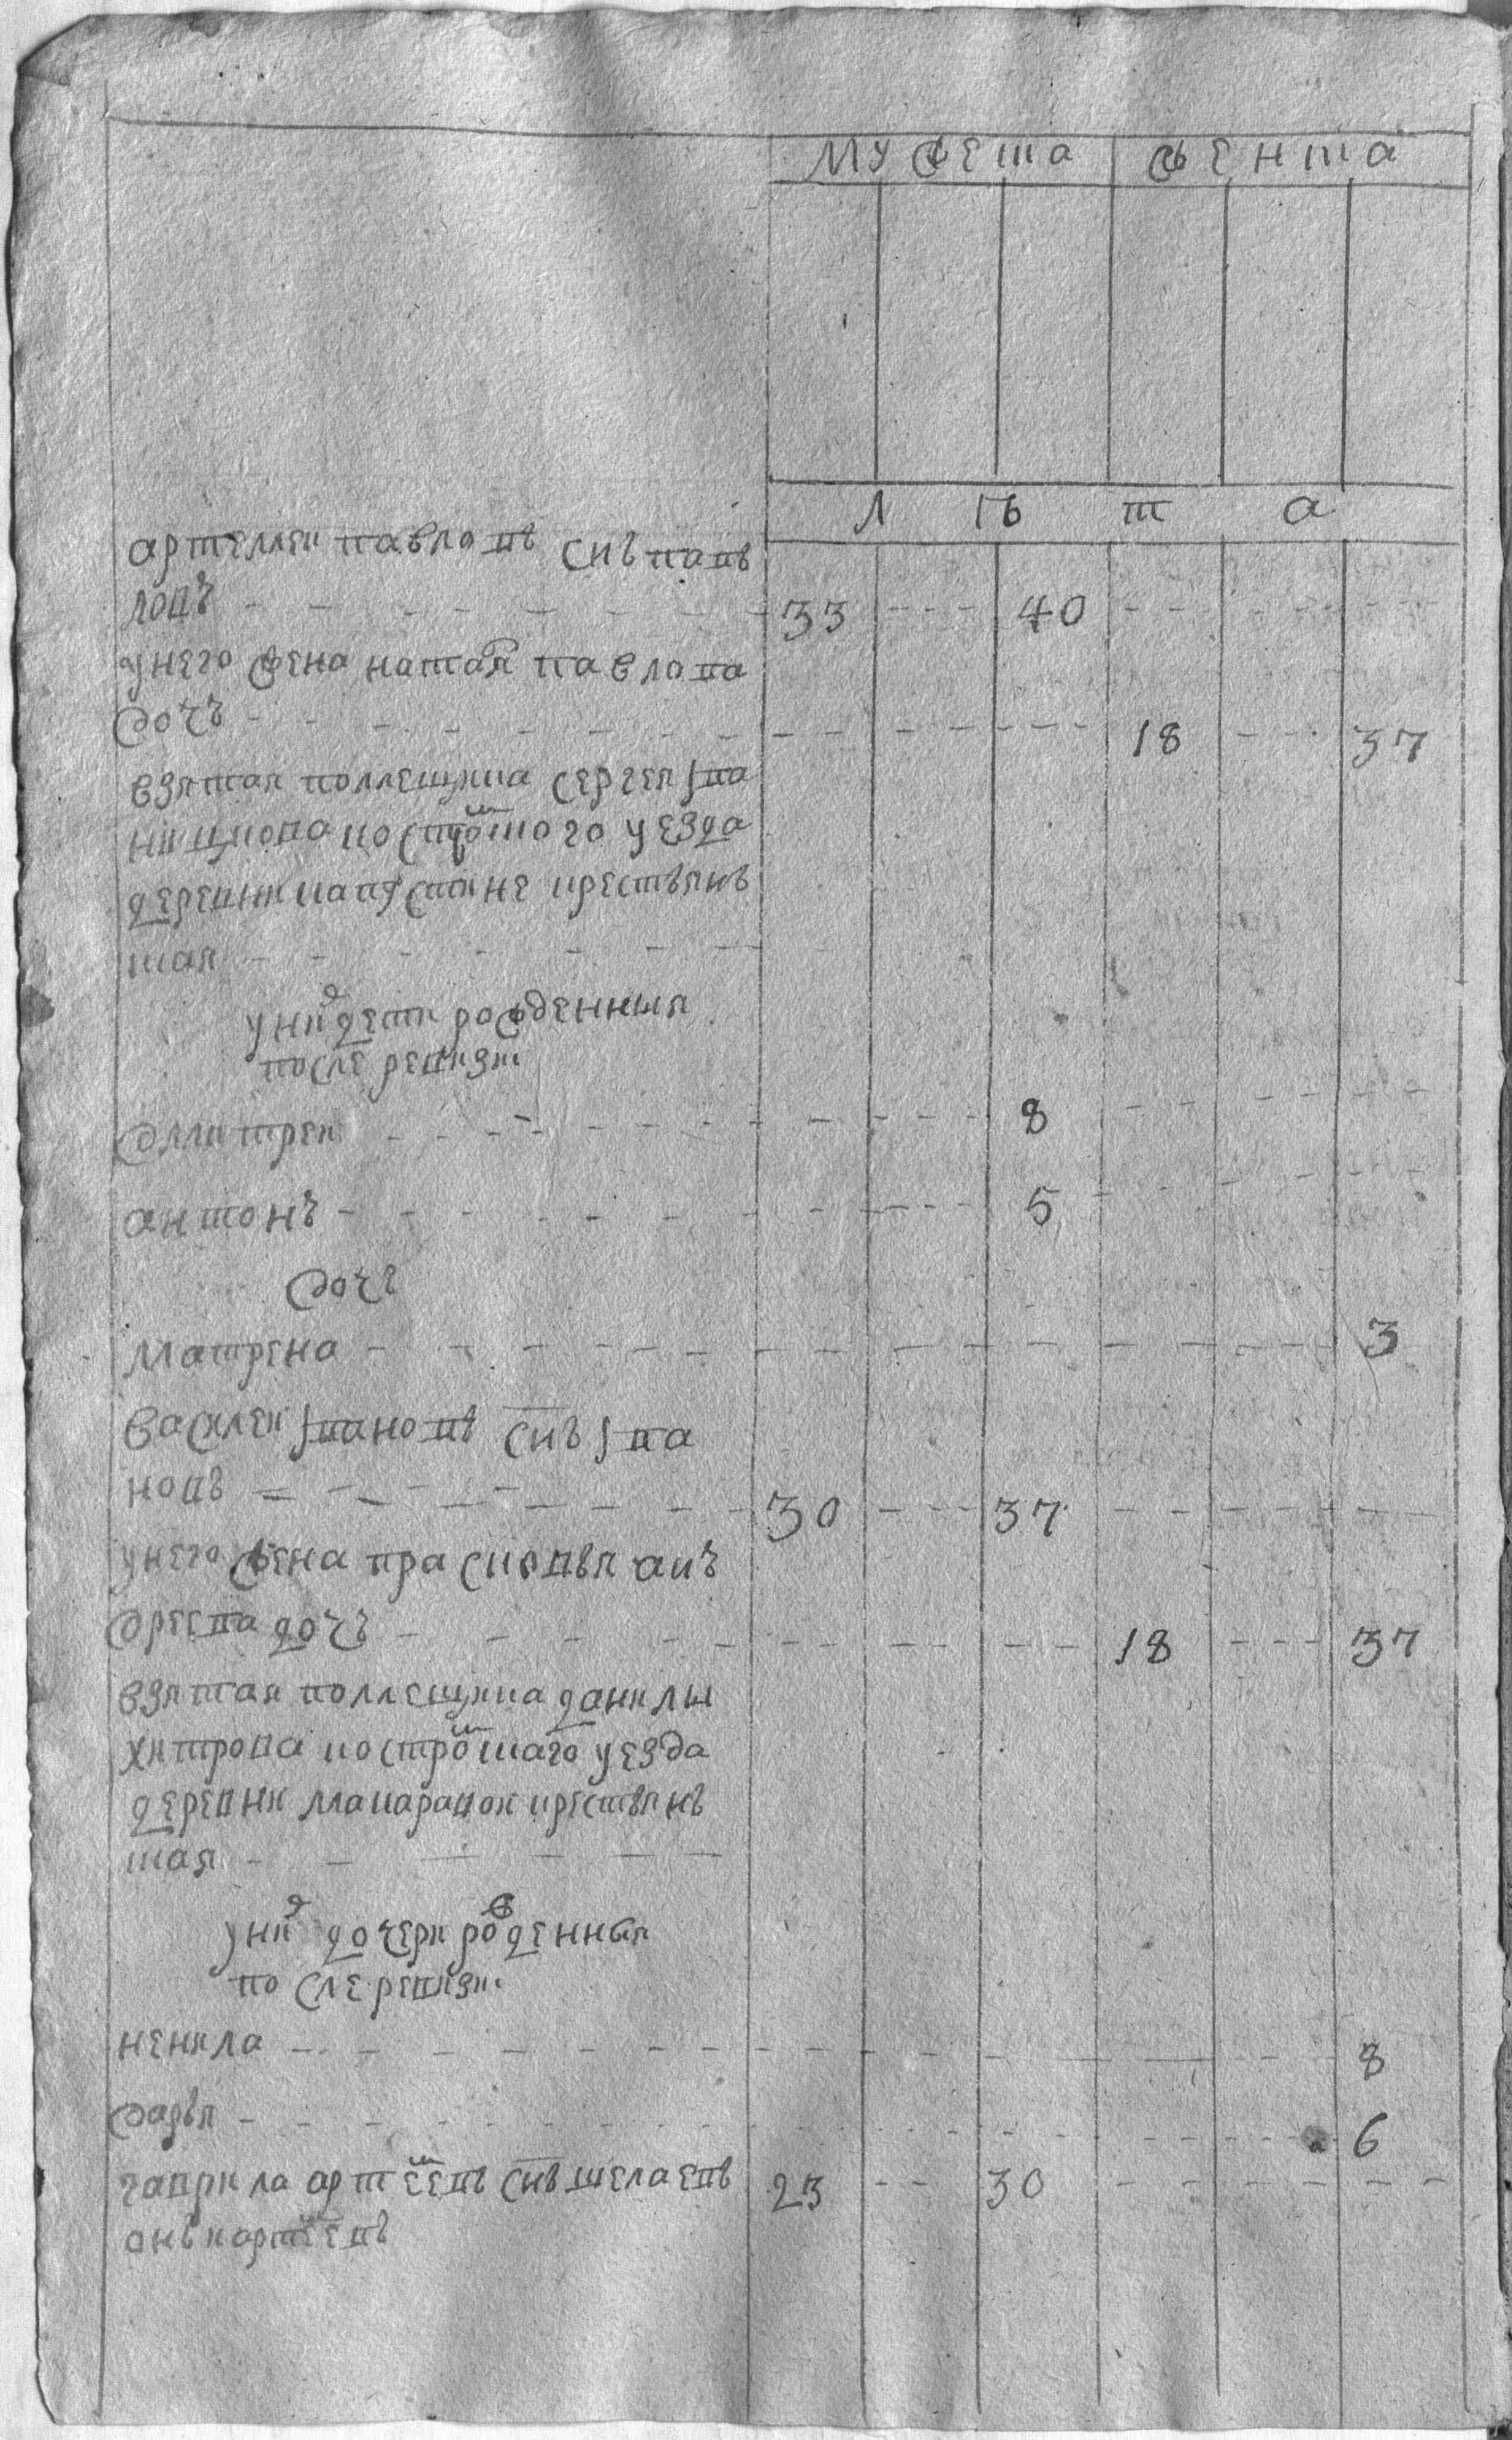 мужеска женска
л ѣ т а
артемеи павловъ снъ пав
ловъ 33 40
унего жена наталя павлова
дочь 18 37
взятая помещика сергея ива
костромского уезда
деревни крестьянъ
ская
уних дети рожденныя
после ревизи
дмитреи 8
антонъ 5
дочь
матрена 3
василеи ивановъ снъ ива
новъ 30 37
унего жена прасковья
дреева дочь 18 37
взятая помещика данилы
хитрова костромскаго уезда
деревни макаровои крестьянъ
ская
уних дочери рожденныя
после ревизи
ненила 8
дарья 6
гаврила снъ 23 30